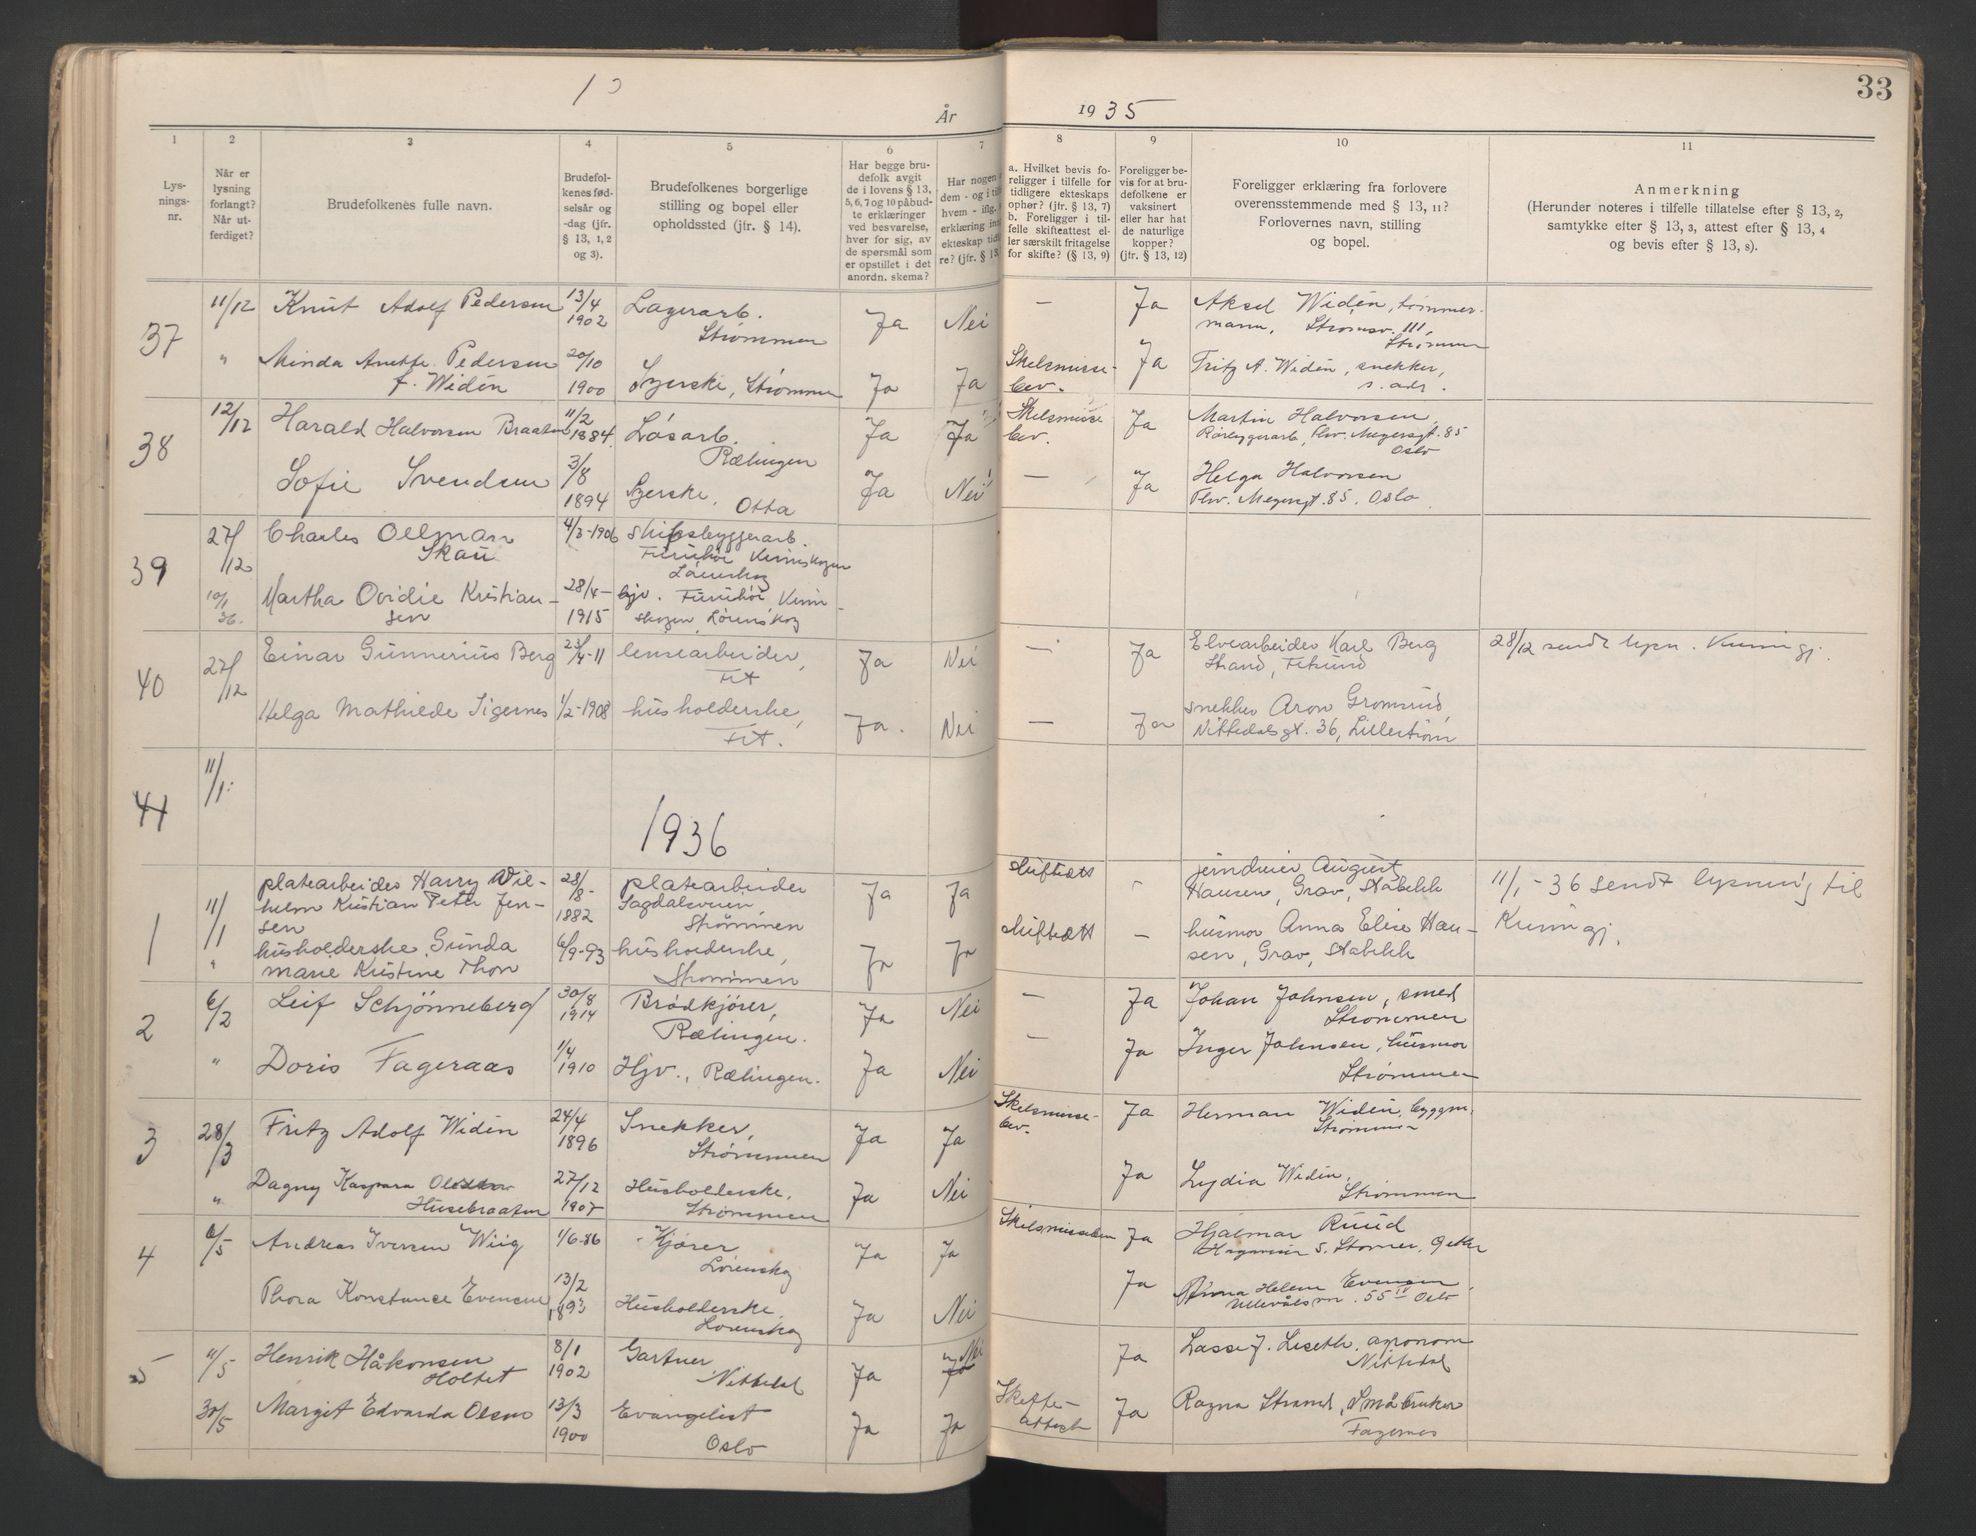 33
År 1935
1 2 3 4 5 6 7 8 9 10 11
Lys-
nings-
nr.
Når er
lysning
forlangt?
Når ut-
ferdiget?
Brudefolkenes fulle navn.
Brudefol-
kenes fød-
selsår og
-dag (jfr.
§ 13, 1, 2
og 3).
Brudefolkenes borgerlige
stilling og bopel eller
opholdssted (jfr. § 14).
Har begge bru-
defolk avgit
de i lovens § 13,
5, 6, 7 og 10 påbud-
te erklæringer
ved besvarelse,
hver for sig, av
de spørsmål som
er opstillet i det
anordn. skema?
Har nogen
dem - og i
hvem - iflg.
erklæring
ekteskap
re? (jfr. §
a. Hvilket bevis fo-
religger i tilfelle for
tidligere ekteskaps
ophør? (jfr. § 13, 7)
b. Foreligger i til-
felle skifteattest el-
ler særskilt fritagelse
for skifte? (§ 13, 9)
Foreligger be-
vis for at bru-
defolkene er
vaksinert
eller har hat
de naturlige
kopper?
(jfr. § 13, 12)
Foreligger erklæring fra forlovere
overensstemmende med § 13, 11?
Forlovernes navn, stilling
og bopel.
Anmerkning
(Herunder noteres i tilfelle tillatelse efter § 13, 2,
samtykke efter § 13, 3, attest efter § 13, 4
og bevis efter § 13, 8).
37 11/12 Knut Adolf Pedersen 13/4 1902 Lagerarb. Strømmen Ja Nei — Ja Aksel Widén, tømmer-
mann, Strømsv. 111, Strømmen
" Minda Anette Pedersen f. Widén 20/10 1900 Syerske, Strømmen Ja Ja Skelsmisse-
bev. Ja Fritz A. Widén, snekker,
s. adr.
38 12/12 Harald Halvorsen Braaten 11/2 1884 Løsarb. Rælingen Ja Ja Skelsmisse
bev. Ja Martin Halvorsen,
Rørleggerarb, Thv. Meyersgt. 85
Oslo
Sofie Svendsen 3/8 1894 Syerske, Otta Ja Nei — Ja Helga Halvorsen
Thv. Meyersgt. 85. Oslo
39 27/12 Charles Ollman Skau 4/3-1906 Skibsbyggerarb.
Furuhøi
Lørenskog
10/1 36. Martha Ovidie Kristian-
sen 28/4-1915 hjv. Furuhøi
skogen, Lørenskog
40 27/12 Einar Gunnerius Berg 23/4-11 lensearbeider, Fet Ja Nei — Ja Elvearbeider Karl Berg
Strand, Fetsund 28/12 sendt lysn. Kunngj.
Helga Mathilde Sigernes 1/2-1908 husholderske, Fet. Ja. Nei — Ja snekker Aron Gromsrud,
Nittedalsgt. 36, Lillestrøm
41 11/1.
1936
1 11/1 platearbeider Harry Wil-
helm Kristian Peter Jen-
sen 28/8-1882 platearbeider
Sagdalsveien, Strømmen Ja Ja skiftett - jerndreier August
Hansen, Grav, Stabekk 11/1-36 sendt lysning til
Kunngj.
" husholderske Gunda
Marie Kristine Thon 6/9-93 husholderske,
Strømmen Ja Ja skiftett — husmor Anna Elise Han-
sen, Grav, Stabekk
2 6/2 Leif Schjønneberg 30/8 1914 Brødkjører,
Rælingen. Ja Nei — Ja Johan Johnsen, smed
Strømmen
" Doris Fageraas 1/4 1910 Hjv., Rælingen. Ja Nei — Ja Inger Johnsen, husmor
Strømmen
3 28/3 Fritz Adolf Widén 24/4 1896 Snekker,
Strømmen Ja Ja Skelsmisse-
bev. Ja Herman Widén, byggm.
Strømmen
" Dagny Kaspara
Husebraaten 27/12 1907 Husholderske,
Strømmen Ja Nei Ja Lydia Widén,
Strømmen
4 6/5 Andreas Iversen Wiig 1/6-86 Kjører
Lørenskog Ja Ja Skelsmissebev Ja Hjalmar Ruud
Thora Konstance Evensen 13/2 1893 Husholderske,
Lørenskog Ja Nei Ja Anna Helene Evensen,
Ullevålsvn. 55 IV Oslo
5 11/5 Henrik Håkonsen
Holtet 8/1 1902 Gartner
Nittedal Ja Nei Ja Lasse J. Liseth, agronom
Nittedal
30/5 Margit Edvarda Olsen 13/3 1900 Evangelist
Oslo Ja Ja Skifte-
attest Ja Ragna Strand, Småbruker
Fagernes